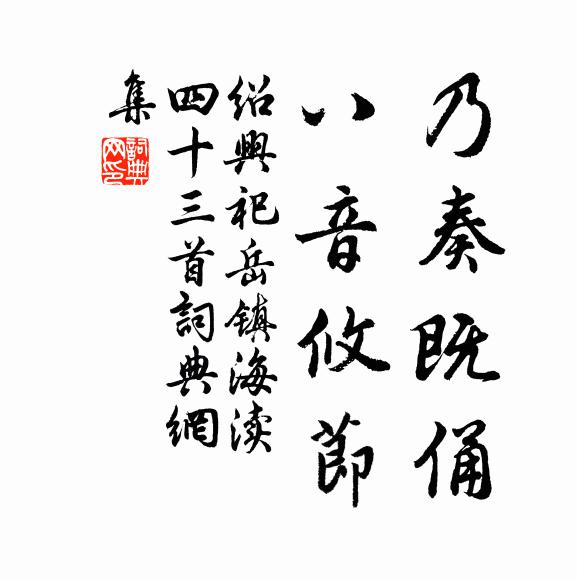 乃奏既俑
八音攸節
紹興祀岳鎮海瀆
四十三首詞典網
集
詞典
网印